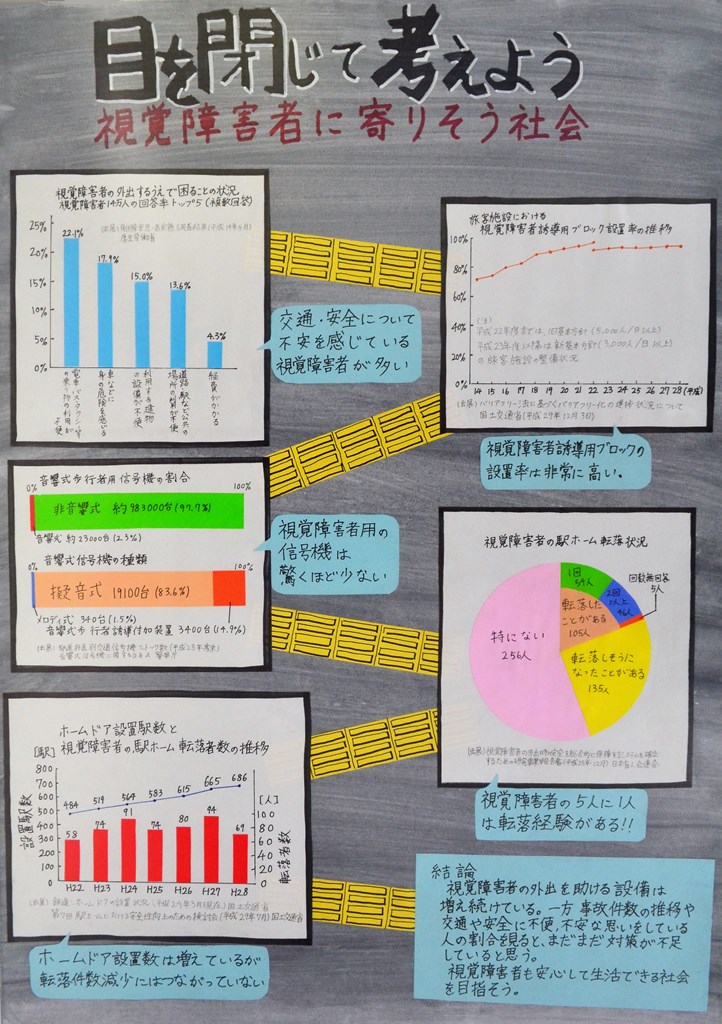 目を閉じて考えよう
視覚障害者に寄りそう社会
視覚障害者の外出するうえで困ることの状況
視覚障害者14万人の回答率トップ5(複数回答)
厚生労働省
25%
20%
15%
10%
5%
0%
22.1%
17.9%
15.0%
13.6%
4.3%
車などに
身の危険を感じる
利用する建物
の設備が不便
道路、駅など公共の
場所の
経費がかかる
交通・安全について
不安を感じている
視覚障害者が多い
旅客施設における
視覚障害者誘導用ブロック設置率の推移
100%
80%
60%
40%
20%
0%
(注)
平成22年度までは、旧基本方針(5,000人/日以上)
平成23年度以降は新基本方針(3,000人/日以上)
の旅客施設の整備状況
14 15 16 17 18 19 20 21 22 23 24 25 26 27 28(平成)
(出典)バリアフリー法に基づくバリアフリー化の進捗状況について
国土交通省(平成29年12月3日)
視覚障害者誘導用ブロックの
設置率は非常に高い。
音響式歩行者用信号機の割合
0% 100%
非音響式 約983000台(97.7%)
音響式 約23000台(2.3%)
音響式信号機の種類
0% 100%
擬音式 19100台(83.6%)
メロディ式 340台(1.5%)
音響式歩行者誘導付加装置 3400台(14.9%)
視覚障害者用の
信号機は
驚くほど少ない
視覚障害者の駅ホーム転落状況
1回
59人
2回
以上
46人
回数無回答
5人
転落した
ことがある
105人
特にない
256人
転落しそうに
なったことがある
135人
視覚障害者の5人に1人
は転落経験がある!!
ホームドア設置駅数と
視覚障害者の駅ホーム転落者数の推移
[駅]
800
700
600
500
400
300
200
100
0
設置駅数
484 519 564 583 615 665 686
58 74 91 74 80 94 69
H22 H23 H24 H25 H26 H27 H28
[人]
100
80
60
40
20
0
転落者数
ホームドア設置数は増えているが
転落件数減少にはつながっていない
結論
視覚障害者の外出を助ける設備は
増え続けている。一方事故件数の推移や
交通や安全に不便、不安な思いをしている
人の割合を見ると、まだまだ対策が不足
していると思う。
視覚障害者も安心して生活できる社会
を目指そう。